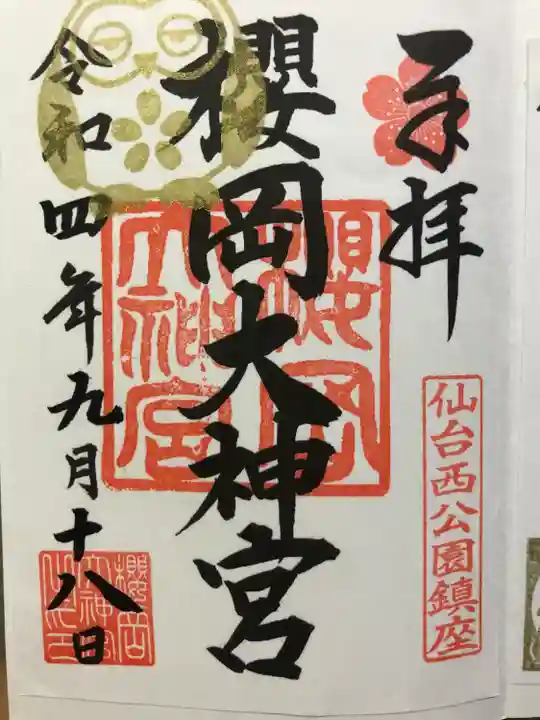 奉拝
仙台西公園鎮座
櫻岡大神宮
櫻岡大神宮
令和四年九月十八日